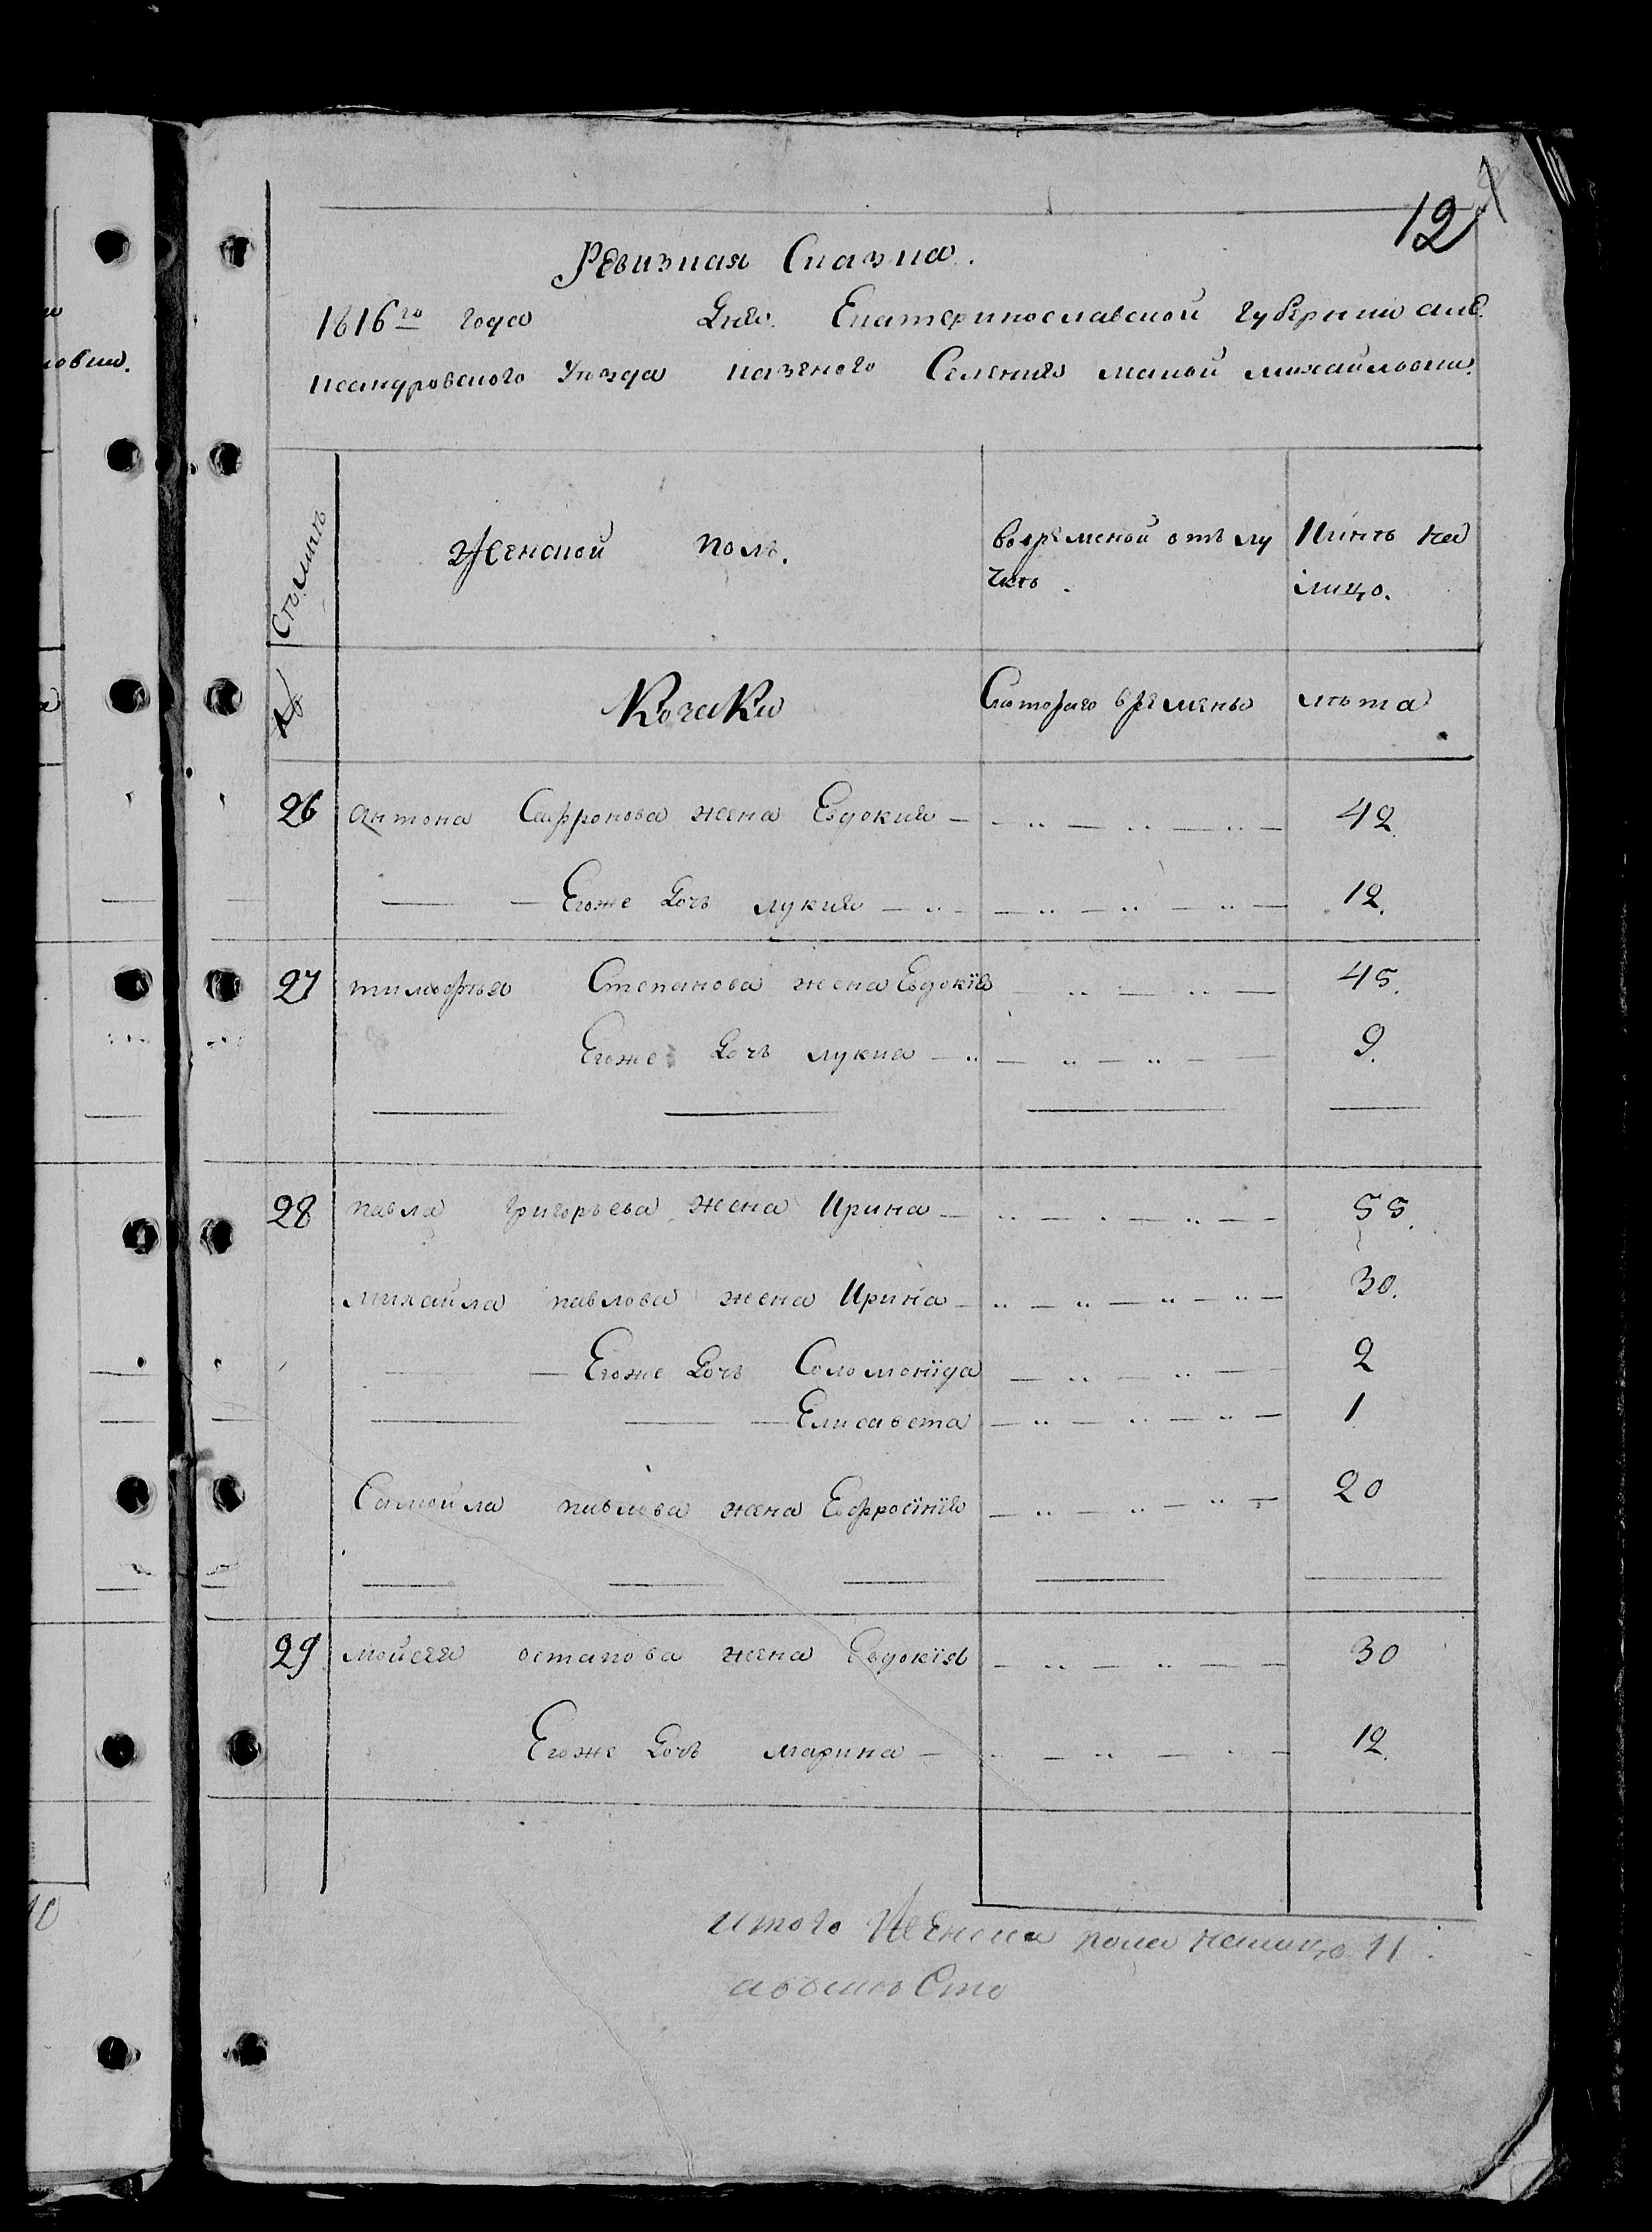 12
Ревизная Сказка.
1816го года Дня. Екатеринославской губернии алек
сандровского Уѣзда казеного Селения малой михайловки.
Женской полъ.
вовременой отълу
чкѣ.
Нынѣ на
лицо.
Которого времены
лѣта
26 Антона Сафронова жена Евдокия 42.
Егоже Дочъ лукия 12.
27 тимофѣя Степанова жена Евдокїя 45.
Егоже Дочъ лукиа 9.
28 павла григорьева жена Ирина 55.
михайла павлова жена Ирина 30.
Егоже Дочъ Соломонїда 2
Елисавета 1
Самойла павлова жена Ефросїнїя 20
29 мойсея остапова жена Евдокїя 30
Егоже Дочъ марина 12.
итого женска пола налицо 11.